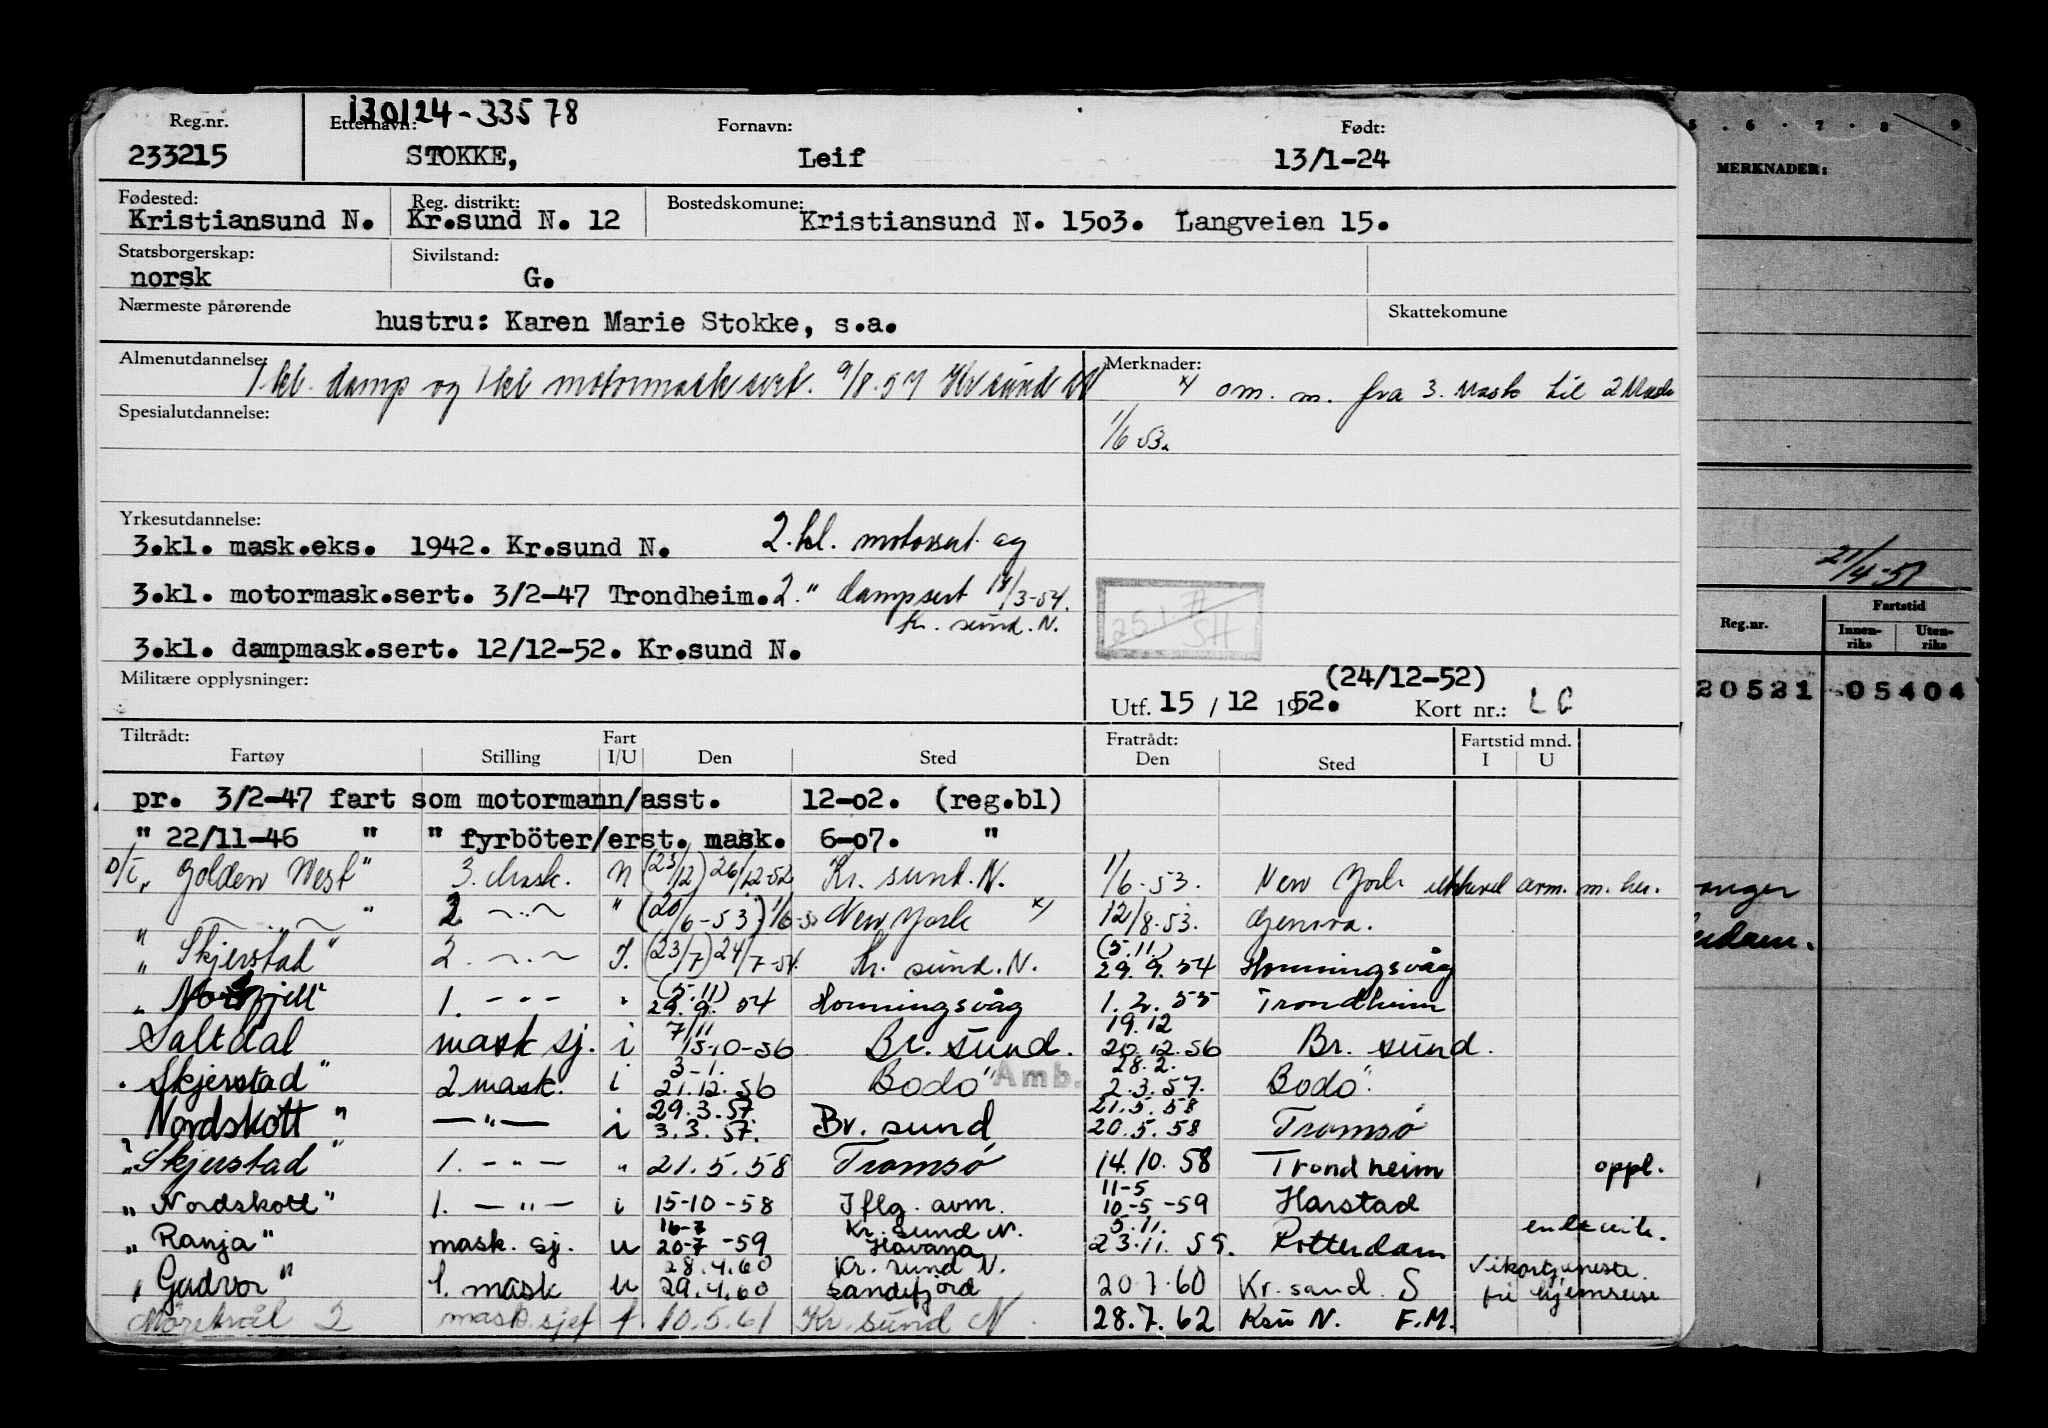 130124-33578
Reg.nr. Etternavn: Fornavn: Født:
233215 STOKKE, Leif 13/1-24
Fødested: Reg. distrikt: Bostedskomune:
Kristiansund N. Kr.sund N. 12 Kristiansund N. 15o3. Langveien 15.
Statsborgerskap: Sivilstand:
norsk G.
Nærmeste pårørende Skattekomune
hustru: Karen Marie Stokke, s.a.
Almenutdannelse: Merknader:
1 kl. damp og 1 kl motormask sert. 9/8.57 Kr sund N
x/ om. m. fra 3. mask til 2 Mask
1/6 53.
Spesialutdannelse:
Yrkesutdannelse:
3.kl. mask.eks. 1942. Kr.sund N. 2.kl. motorsert. og
3.kl. motormask.sert. 3/2-47 Trondheim. 2. " dampsert 17/3-54.
Kr. sund. N.
3.kl. dampmask.sert. 12/12-52. Kr.sund N.
Militære opplysninger:
(24/12-52)
Utf. 15 / 12 1952. Kort nr.:
Tiltrådt: Fart Fratrådt: Fartstid mnd.
Fartøy Stilling I/U Den Sted Den Sted I U
pr. 3/2-47 fart som motormann/asst. 12-o2. (reg.bl)
" 22/11-46 " " fyrböter/erst. mask. 6-o7. "
D/T „ Golden West" 3. Mask. (23/12) 26/12-52 Kr. sund. N. 1/6-53. New York m. her.
" 2. -"- " (20/6-53) 1/6-53 New York x/ 12/8.53. Genova.
„ Skjerstad" 2. -"- I. (23/7) 24/7-54. Kr. sund. N. (5.11.) 29.9.54 Honningsvåg
„ 1. -"- " (5.11) 29.9.54 Honningsvåg 1.2.55 Trondheim
Saltdal mask sj. i 7/11 15-10-56 Br. sund. 19.12 20.12.56 Br. sund.
Skjerstad" 2 mask. i 3-1. 21.12.56 Bodö" Amb. 28.2. 2.3.57. Bodö.
Nordskott " -"- i 29.3.57. 3.3.57. Br. sund 21.5.58 20.5.58 Tromsö
„ Skjerstad " 1. -"- " 21.5.58 Tromsö 14.10.58 Trondheim oppl.
„ Nordskott" 1. -"- i 15-10-58 Iflg. avm. 11-5 10-5-59 Harstad
„ Ranja" mask. sj. u 16-7 20-7-59 Kr. sund N. Havana 5.11. 23.11.59. Rotterdam
„ Gudvor" 1. mask u 28.4.60 29.4.60 Kr. sund N. Sandefjord 20.7.60 Kr. sand. S Vikartjeneste. fri hjemreise
Möretrål 2 mask.sjef f 10.5.61 Kr. sund N. 28.7.62 Ksu N. F.M.
5 . 6 . 7 . 8 . 9
MERKNADER:
21/4-51
Fartstid
Reg.nr. Innen-riks Uten-riks
20521 05404